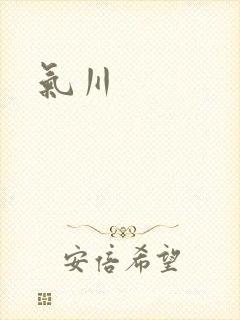 氣川
安倍希望